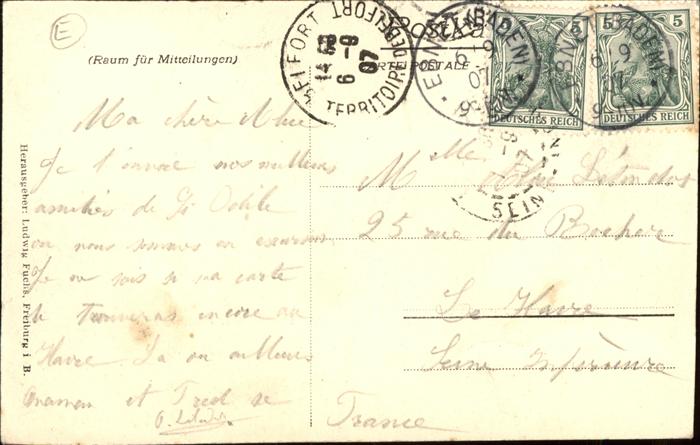 E
(Raum für Mitteilungen)
BELFORT
6-9
07
TERRITOIRE DE BELFORT
CARTE POSTALE
(BADEN)
6 9
07
5
DEUTSCHES REICH
5
DEUTSCHES REICH
Herausgeber: Ludwig Fuchs, Freiburg i. B.
Ma chère
Je t'envoie nos meilleures
amitiés de Ste Odile
où nous sommes en excursion
Je ne sais si ma carte
te trouvera encore au
Havre. Ya ou ailleurs
maman et Fred se
Melle
25 rue du Rocher
Le Havre
Seine Inférieure
France